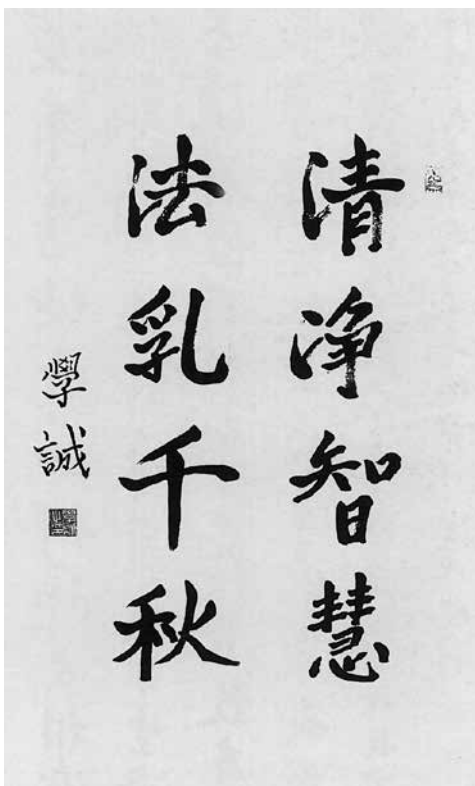 清净智慧
法乳千秋
學誠